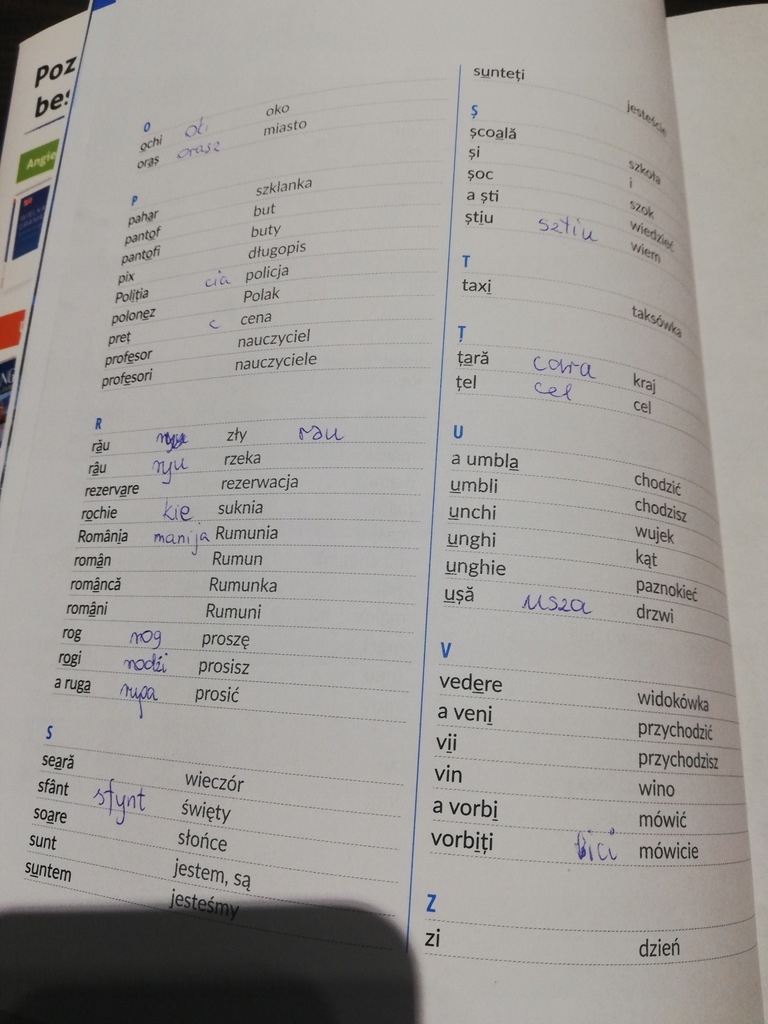 Poz
bes
Angie
O
ochi oti oko
oraș orasz miasto
P
pahar szklanka
pantof but
pantofi buty
pix długopis
Poliția cia policja
polonez Polak
preț c cena
profesor nauczyciel
profesori nauczyciele
R
rău zły rau
râu ryu rzeka
rezervare rezerwacja
rochie kie suknia
România manija Rumunia
român Rumun
româncă Rumunka
români Rumuni
rog rog proszę
rogi rodzi prosisz
a ruga prosić
S
seară wieczór
sfânt sfynt święty
soare słońce
sunt jestem, są
suntem jesteśmy
sunteți jesteście
Ș
școală szkoła
și i
șoc szok
a ști wiedzieć
știu sztiu wiem
T
taxi taksówka
Ț
țară cara kraj
țel cel cel
U
a umbla chodzić
umbli chodzisz
unchi wujek
unghi kąt
unghie paznokieć
ușă usza drzwi
V
vedere widokówka
a veni przychodzić
vii przychodzisz
vin wino
a vorbi mówić
vorbiți bici mówicie
Z
zi dzień